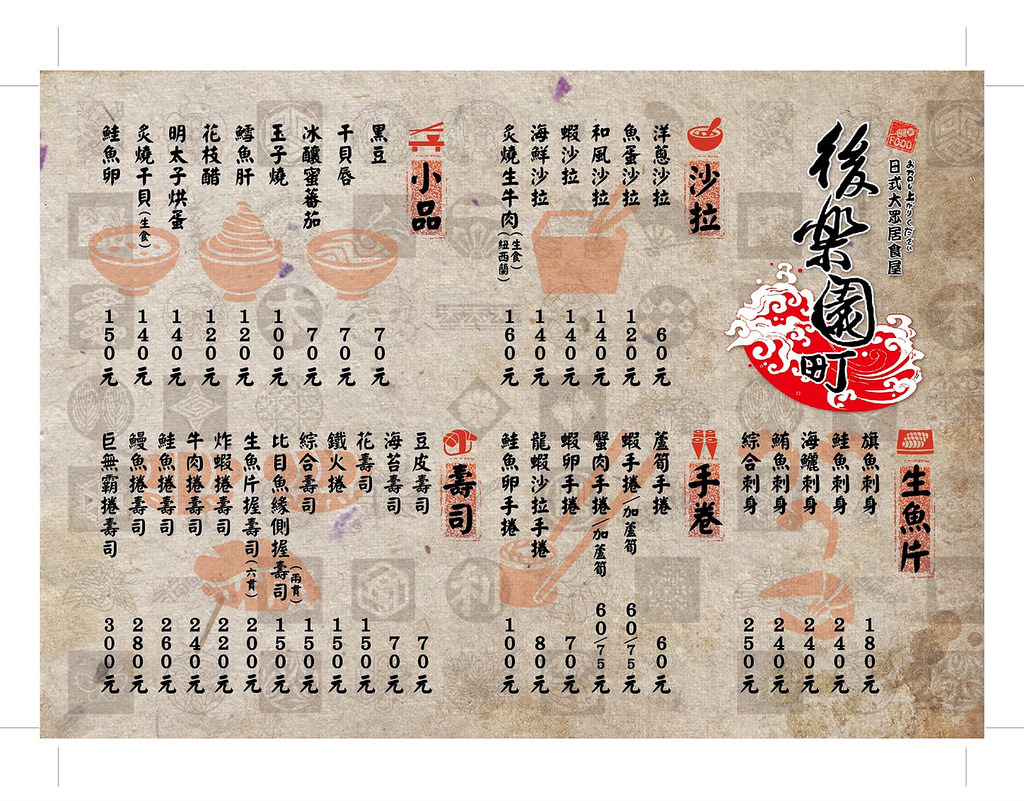 後樂園町
FOOD
お召し上がりください
日式大眾居食屋
沙拉
洋蔥沙拉 60元
魚蛋沙拉 120元
和風沙拉 140元
蝦沙拉 140元
海鮮沙拉 140元
炙燒生牛肉(生食)(紐西蘭) 160元
小品
黑豆 70元
干貝唇 70元
冰釀蜜蕃茄 70元
玉子燒 100元
鱈魚肝 120元
花枝醋 120元
明太子烘蛋 140元
炙燒干貝(生食) 140元
鮭魚卵 150元
生魚片
旗魚刺身 180元
鮭魚刺身 240元
海鱺刺身 240元
鮪魚刺身 240元
綜合刺身 250元
手卷
蘆筍手捲 60元
蝦手捲/加蘆筍 60/75元
蟹肉手捲/加蘆筍 60/75元
蝦卵手捲 70元
龍蝦沙拉手捲 80元
鮭魚卵手捲 100元
壽司
豆皮壽司 70元
海苔壽司 70元
花壽司 150元
鐵火捲 150元
綜合壽司 150元
比目魚緣側握壽司(兩貫) 150元
生魚片握壽司(六貫) 200元
炸蝦捲壽司 220元
牛肉捲壽司 240元
鮭魚捲壽司 260元
鰻魚捲壽司 280元
巨無霸捲壽司 300元